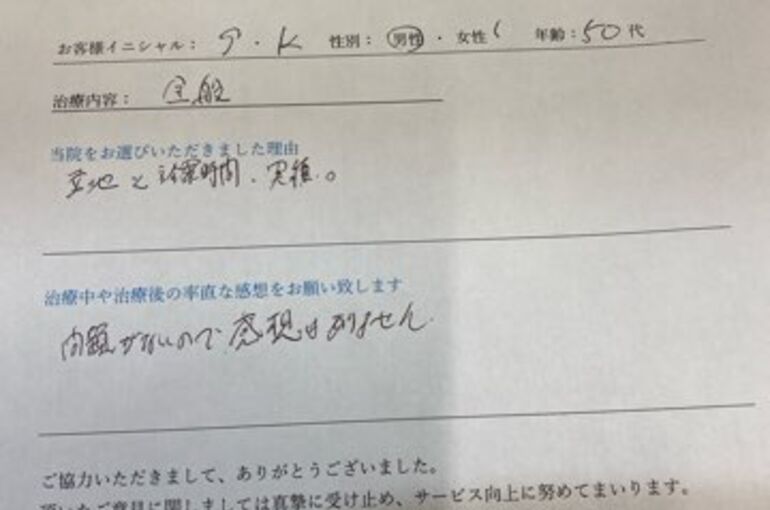 お客様イニシャル： T．K 性別： 男性 ・ 女性 年齢：50代
治療内容： 全般
当院をお選びいただきました理由
立地と診察時間、実績。
治療中や治療後の率直な感想をお願い致します
問題がないので感想はありません．
ご協力いただきまして、ありがとうございました。
頂いたご意見に関しましては真摯に受け止め、サービス向上に努めてまいります。